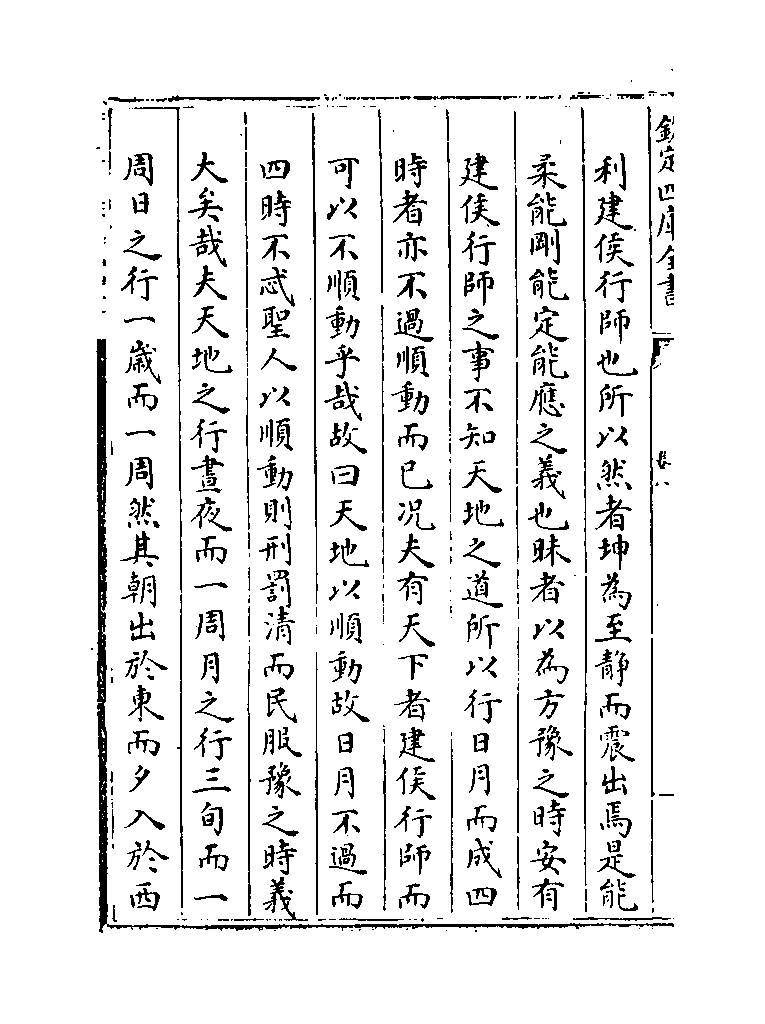 欽定四庫全書
卷八
利建侯行師也所以然者坤為至靜而震出焉是能
柔能剛能定能應之義也昧者以為方豫之時安有
建侯行師之事不知天地之道所以行日月而成四
時者亦不過順動而已况夫有天下者建侯行師而
可以不順動乎哉故曰天地以順動故日月不過而
四時不忒聖人以順動則刑罰清而民服豫之時義
大矣哉夫天地之行晝夜而一周月之行三旬而一
周日之行一歲而一周然其朝出於東而夕入於西